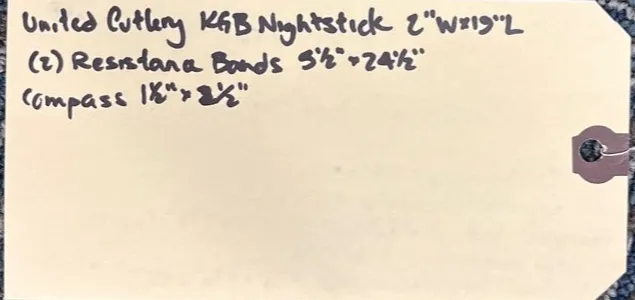 United Cutlery KGB Nightstick 2"Wx19"L
(2) Resistance Bands 5½"x24½"
Compass 1½"x 2½"